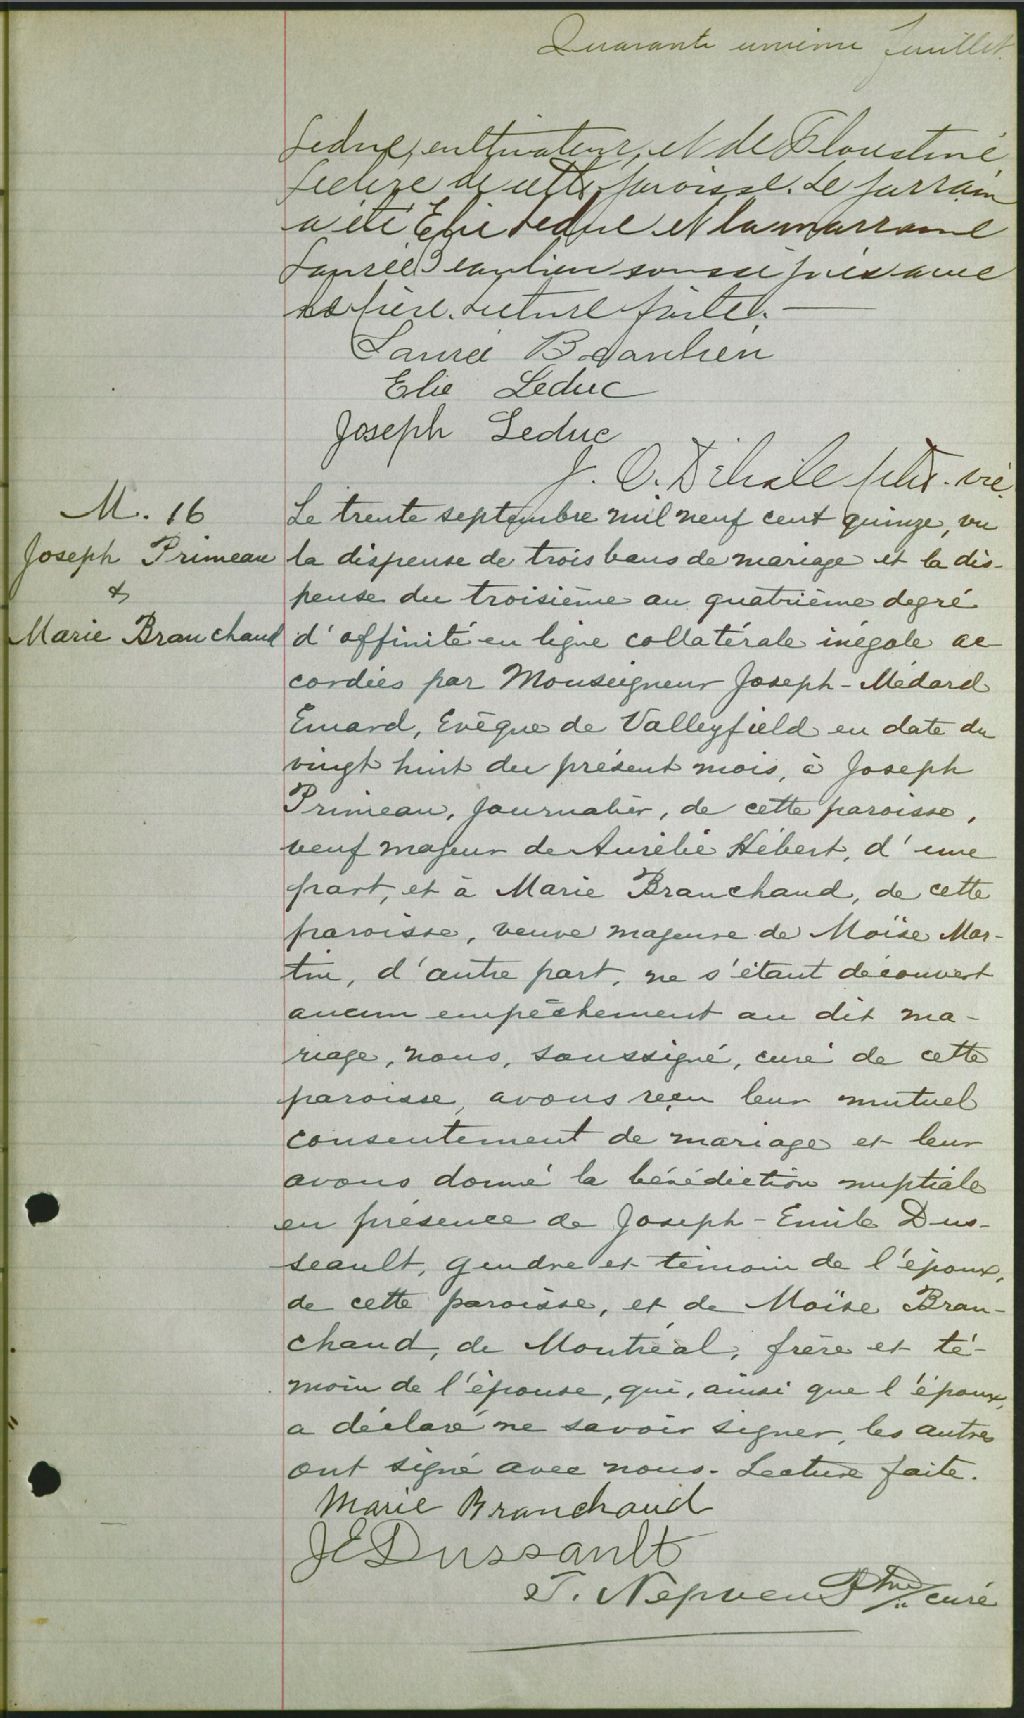 Quarante unième feuillet
Leduc, cultivateur, et de Floustine
Leclerc de cette paroisse. Le parrain
a été Elie Leduc et la marraine
Laurée Beaulieu soussignés avec
le père. Lecture faite.
Laurée Beaulieu
Elie Leduc
Joseph Leduc
J. O. Delisle ptre. vic.
M. 16
Joseph Primeau
&
Marie Branchaud
Le trente septembre mil neuf cent quinze, vu
la dispense de trois bans de mariage et la dis-
pense du troisième au quatrième degré
d'affinité en ligne collatérale inégale ac
cordées par Monseigneur Joseph-Médard
Emard, Evêque de Valleyfield en date du
vingt huit du présent mois, à Joseph
Primeau, journalier, de cette paroisse,
veuf majeur de Aurélie Hébert, d'une
part, et à Marie Branchaud, de cette
paroisse, veuve majeure de Moïse Mar-
tin, d'autre part, ne s'étant découvert
aucun empêchement au dit ma-
riage, nous, soussigné, curé de cette
paroisse, avons reçu leur mutuel
consentement de mariage et leur
avons donné la bénédiction nuptiale
en présence de Joseph-Emile Dus-
seault, gendre et témoin de l'époux,
de cette paroisse, et de Moïse Bran-
chaud, de Montréal, frère et té-
moin de l'épouse, qui, ainsi que l'époux,
a déclaré ne savoir signer, les autres
ont signé avec nous. Lecture faite.
Marie Branchaud
J E Dussault
T. Nepveu Ptre curé